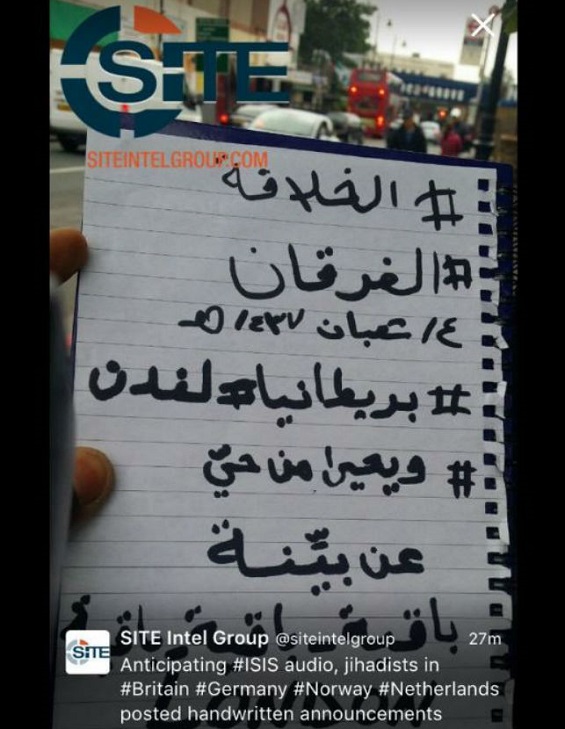 SITE
SITEINTELGROUP.COM
# الخلافة
#الفرقان
١٤ شعبان ١٤٣٧ هـ
# بريطانيا#لندن
# ويحيا من حيّ
عن بيّنة
باقية - باقية - باقية
LONDON
SITE
SITE Intel Group @siteintelgroup 27m
Anticipating #ISIS audio, jihadists in
#Britain #Germany #Norway #Netherlands
posted handwritten announcements